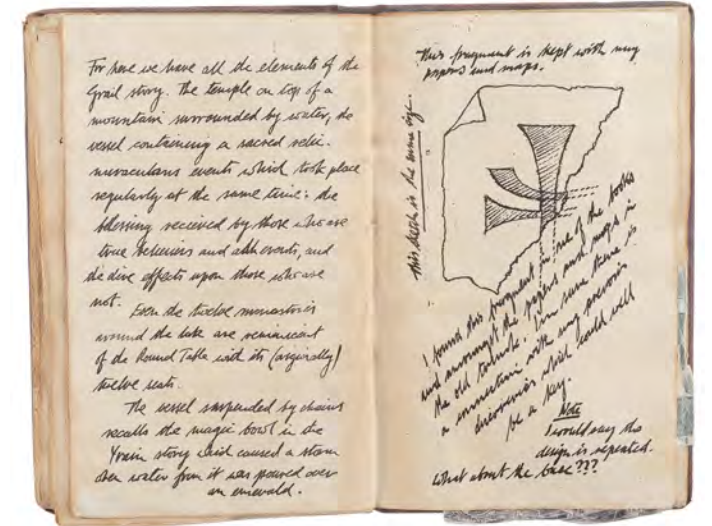 For here we have all the elements of the
Grail story. The temple on top of a
mountain surrounded by water, the
vessel containing a sacred relic.
miraculous events which took place
regularly at the same time: the
blessing recieved by those who are
true believers and
the dire effects upon those who are
not. Even the twelve monasteries
around the lake are reminiscent
of the Round Table with its (originally)
twelve seats.
The vessel suspended by chains
recalls the magic bowl in the
Yvain story said caused a storm
when water from it was poured over
an emerald.
This fragment is kept with my
papers and maps.
this sketch is the same size.
I found this fragment in one of the books
and amongst the papers and maps in
the old trunk. I'm sure there is
a connection with my previous
discoveries which could well
be a key.
Note
I would say the
design is repeated.
What about the base???